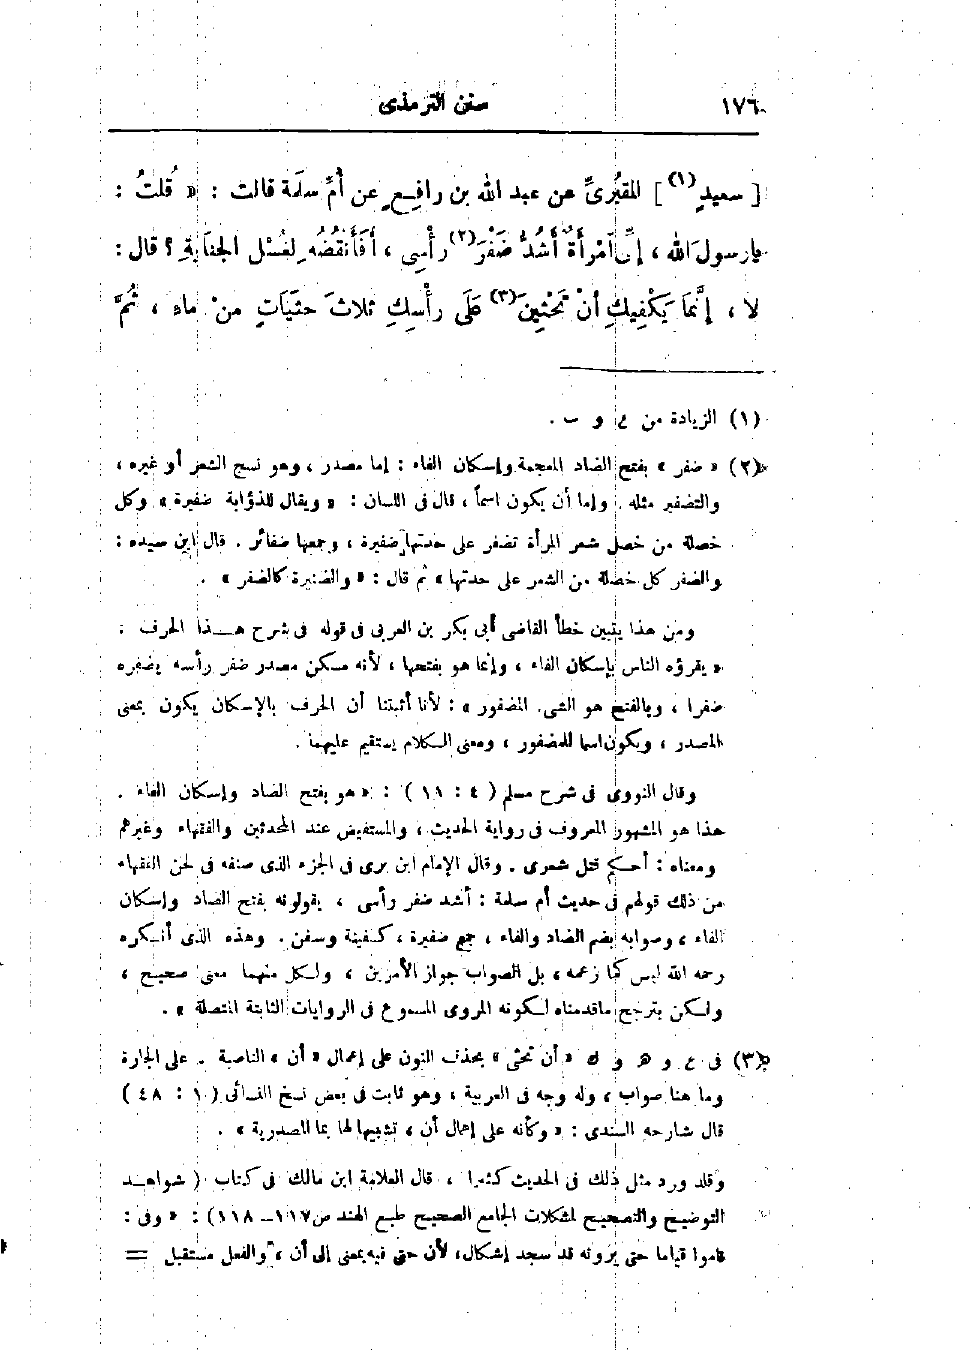 ١٧٦ سنن الترمذى
[ سعيدٍ (١) ] المقبُرىِّ عن عبد الله بن رافِعٍ عن أُمِّ سلَمَة قالت : « قُلتُ :
يارسولَ الله ، إنِّى امْرأَةٌ أَشُدُّ ضَفْرَ (٢) رأْسِى ، أَفَأَنْقُضُه لِغُسْلِ الجَنابَةِ ؟ قال :
لا ، إنَّما يَكْفِيكِ أنْ تَحْثِينَ (٣) عَلَى رأْسِكِ ثلاثَ حثَيَاتٍ منْ ماءٍ ، ثُمَّ
(١) الزيادة من ع و ب .
(٢) « ضفر » بفتح الضاد المعجمة وإسكان الفاء : إما مصدر ، وهو نسج الشعر أو غيره ،
والتضفير مثله . وإما أن يكون اسماً ، قال فى اللسان : « ويقال للذؤابة ضفيرة » وكل
خصلة من خصل شعر المرأة تضفر على حدتها ضفيرة ، وجمعها ضفائر . قال ابن سيده :
والضفر كل خصلة من الشعر على حدتها » ثم قال : « والضفيرة كالضفر » .
ومن هذا يتبين خطأ القاضى أبى بكر بن العربى فى قوله فى شرح هـذا الحرف :
« يقرؤه الناس بإسكان الفاء ، وإنما هو بفتحها ، لأنه مسكن مصدر ضفر رأسه يضفره
ضفرا ، وبالفتح هو الشىء المضفور » : لأنا أثبتنا أن الحرف بالإسكان يكون بمعنى
المصدر ، ويكون اسما للمضفور ، ومعنى الكلام يستقيم عليهما .
وقال النووى فى شرح مسلم ( ٤ : ١١ ) : « هو بفتح الضاد وإسكان الفاء .
هذا هو المشهور المعروف فى رواية الحديث ، والمستفيض عند المحدثين والفقهاء وغيرهم
ومعناه : أحكم فتل شعرى . وقال الإمام ابن برى فى الجزء الذى صنفه فى لحن الفقهاء
من ذلك قولهم فى حديث أم سلمة : أشد ضفر رأسى ، يقولونه بفتح الضاد وإسكان
الفاء ، وصوابه بضم الضاد والفاء ، جمع ضفيرة ، كسفينة وسفن . وهذه الذى أنكره
رحمه الله ليس كما زعمه ، بل الصواب جواز الأمرين ، ولكل منهما معنى صحيح ،
ولكن يترجح ماقدمناه لكونه المروى المسموع فى الروايات الثابتة المتصلة » .
(٣) فى ع و هـ و ك « أن تحثى » بحذف النون على إعمال « أن » الناصبة . على الجارة
وما هنا صواب ، وله وجه فى العربية ، وهو ثابت فى بعض نسخ النسائى ( ١ : ٤٨ )
قال شارحه السندى : « وكأنه على إهمال أن ، تشبيها لها بما المصدرية » .
وقد ورد مثل ذلك فى الحديث كثيرا ، قال العلامة ابن مالك فى كتاب ( شواهـد
التوضيح والتصحيح لمشكلات الجامع الصحيح طبع الهند ص ١١٧ – ١١٨ ) : « وفى :
قاموا قياما حتى يرونه قد سجد إشكال، لأن حتى فيه بمعنى إلى أن ، والفعل مستقبل =